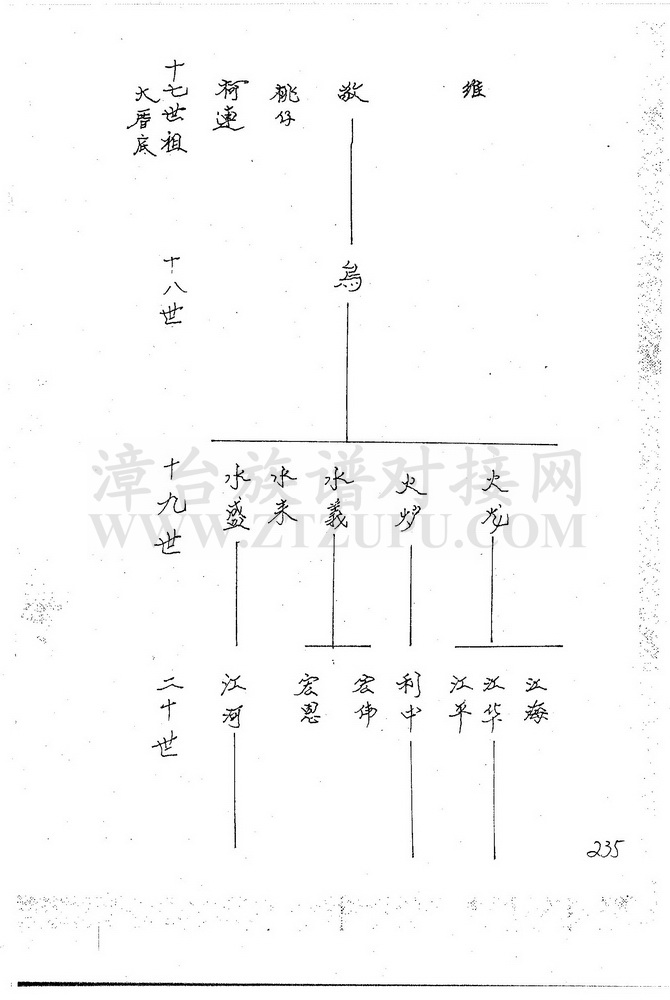 十七世祖
大厝底
柯連
桃仔
敬
維
十八世
烏
十九世
水盛
水来
水義
火炉
火龙
二十世
江河
宏恩
宏伟
利中
江平
江华
江海
漳台族谱对接网
WWW.ZTZUPU.COM
235